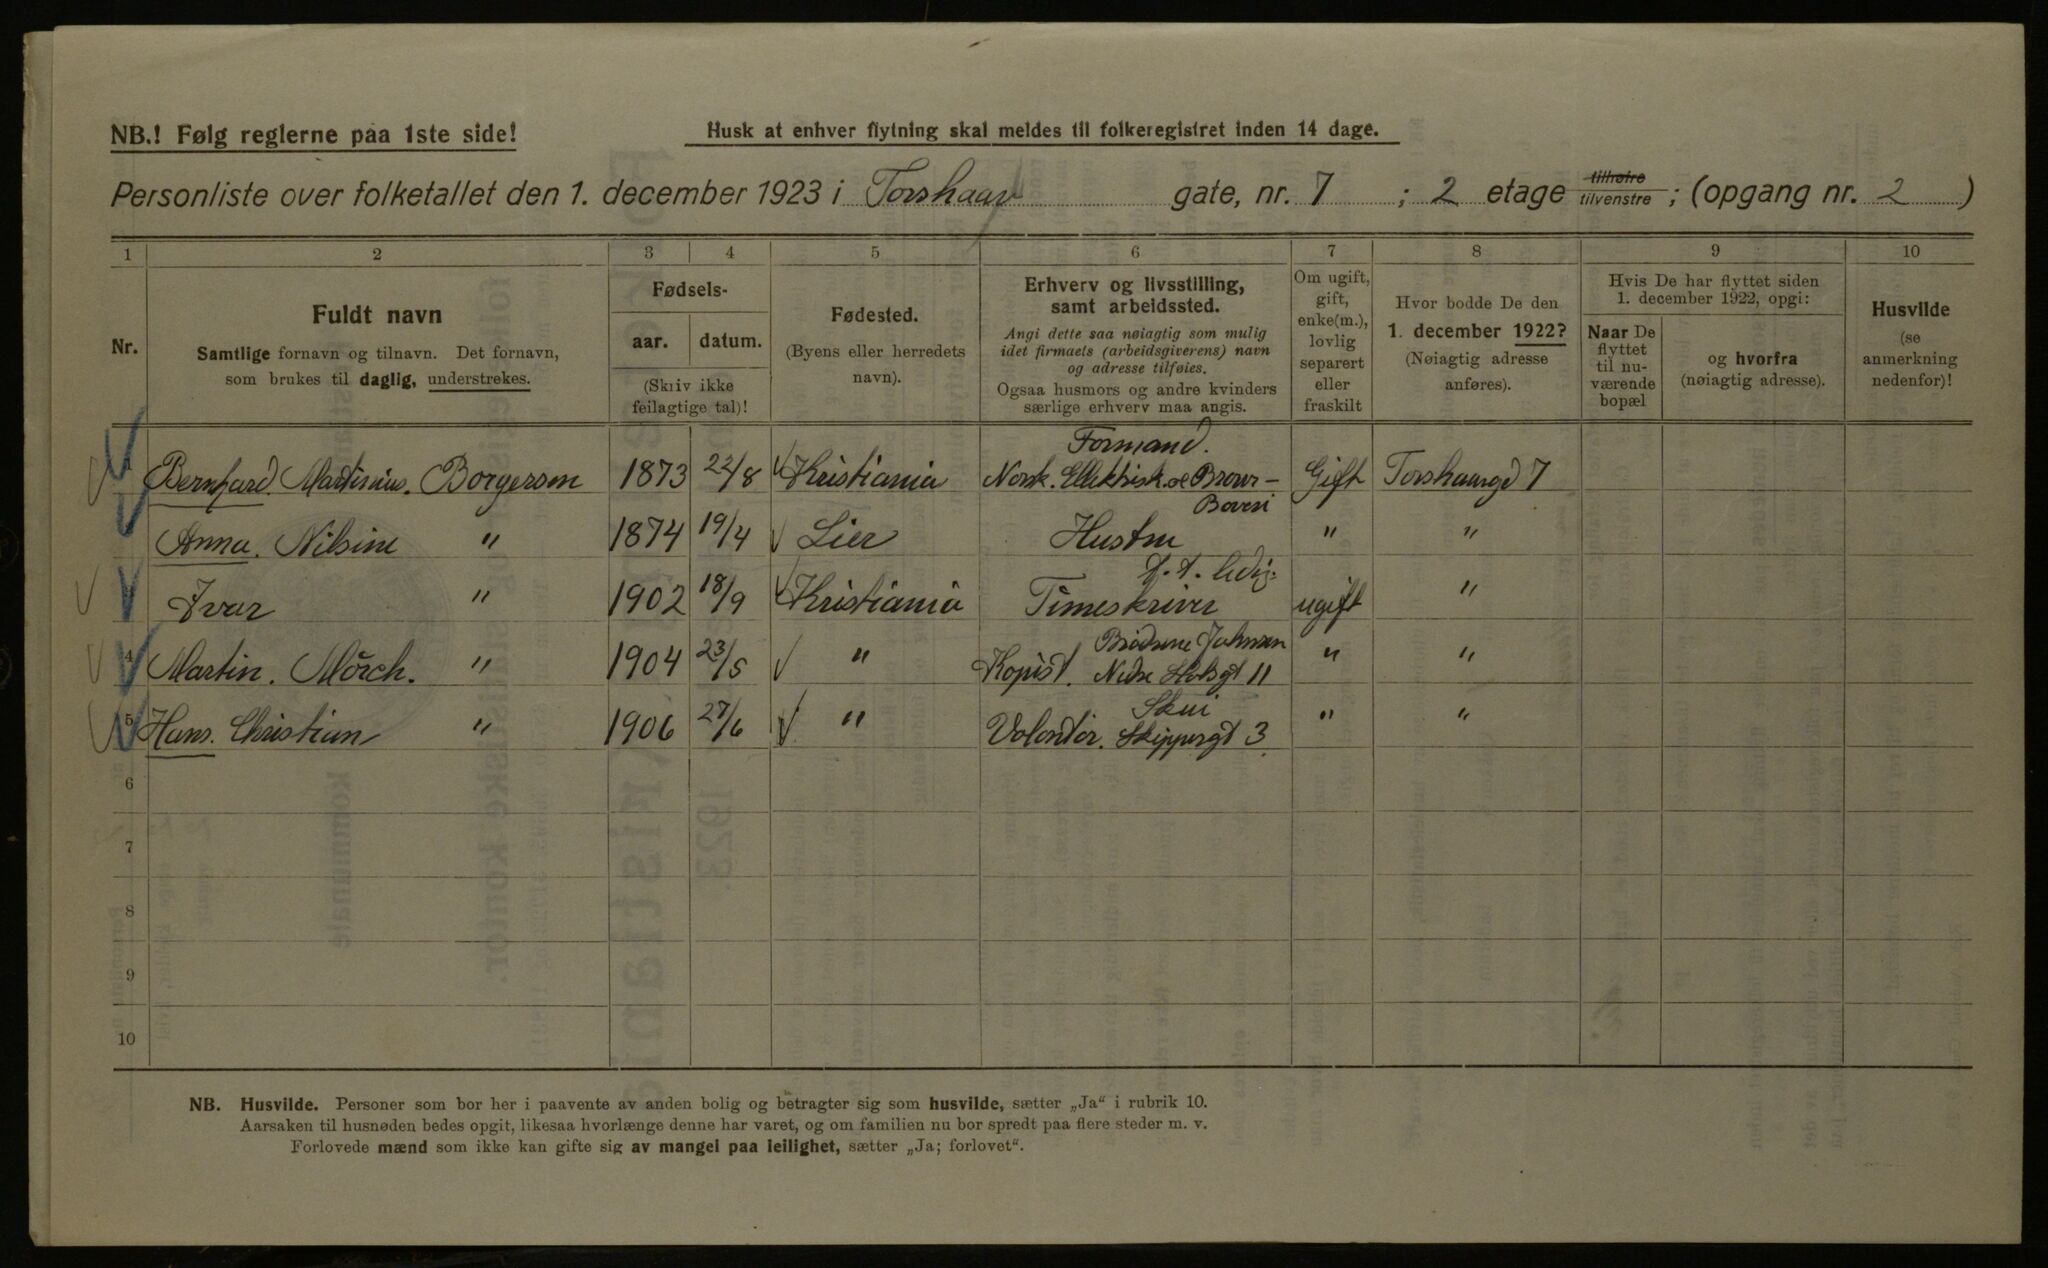 NB.! Følg reglerne paa 1ste side!
Husk at enhver flytning skal meldes til folkeregistret inden 14 dage.
Personliste over folketallet den 1. december 1923 i Torshaav gate, nr. 7 ; 2 etage tilhøire tilvenstre ; (opgang nr. 2 )
1 2 3 4 5 6 7 8 9 10
Nr.
Fuldt navn
Samtlige fornavn og tilnavn. Det fornavn,
som brukes til daglig, understrekes.
Fødsels-
aar. datum.
(Skriv ikke
feilagtige tal)!
Fødested.
(Byens eller herredets
navn).
Erhverv og livsstilling,
samt arbeidssted.
Angi dette saa nøiagtig som mulig
idet firmaets (arbeidsgiverens) navn
og adresse tilføies.
Ogsaa husmors og andre kvinders
særlige erhverv maa angis.
Om ugift,
gift,
enke(m.),
lovlig
separert
eller
fraskilt
Hvor bodde De den
1. december 1922?
(Nøiagtig adresse
anføres).
Hvis De har flyttet siden
1. december 1922, opgi:
Naar De
flyttet
til nu-
værende
bopæl
og hvorfra
(nøiagtig adresse).
Husvilde
(se
anmerkning
nedenfor)!
Formand.
Bernhard. Martinius. Borgersen 1873 22/8 Kristiania Norsk. Ellektrisk. & Brown- Gift Torshaavgd 7
Boveri
Anna. Nilsine " 1874 19/4 Lier Hustru " "
f. t. ledig.
Ivar " 1902 18/9 Kristiania Timeskriver ugift "
Brødrene Johnsen
4 Martin. Mörch. " 1904 23/5 " Kopist. Nedre Slotsgt 11 " "
Skui
5 Hans. Christian " 1906 27/6 " Volontör. Skippergt 3 " "
6
7
8
9
10
NB. Husvilde. Personer som bor her i paavente av anden bolig og betragter sig som husvilde, sætter „Ja“ i rubrik 10.
Aarsaken til husnøden bedes opgit, likesaa hvorlænge denne har varet, og om familien nu bor spredt paa flere steder m. v.
Forlovede mænd som ikke kan gifte sig av mangel paa leilighet, sætter „Ja; forlovet“.